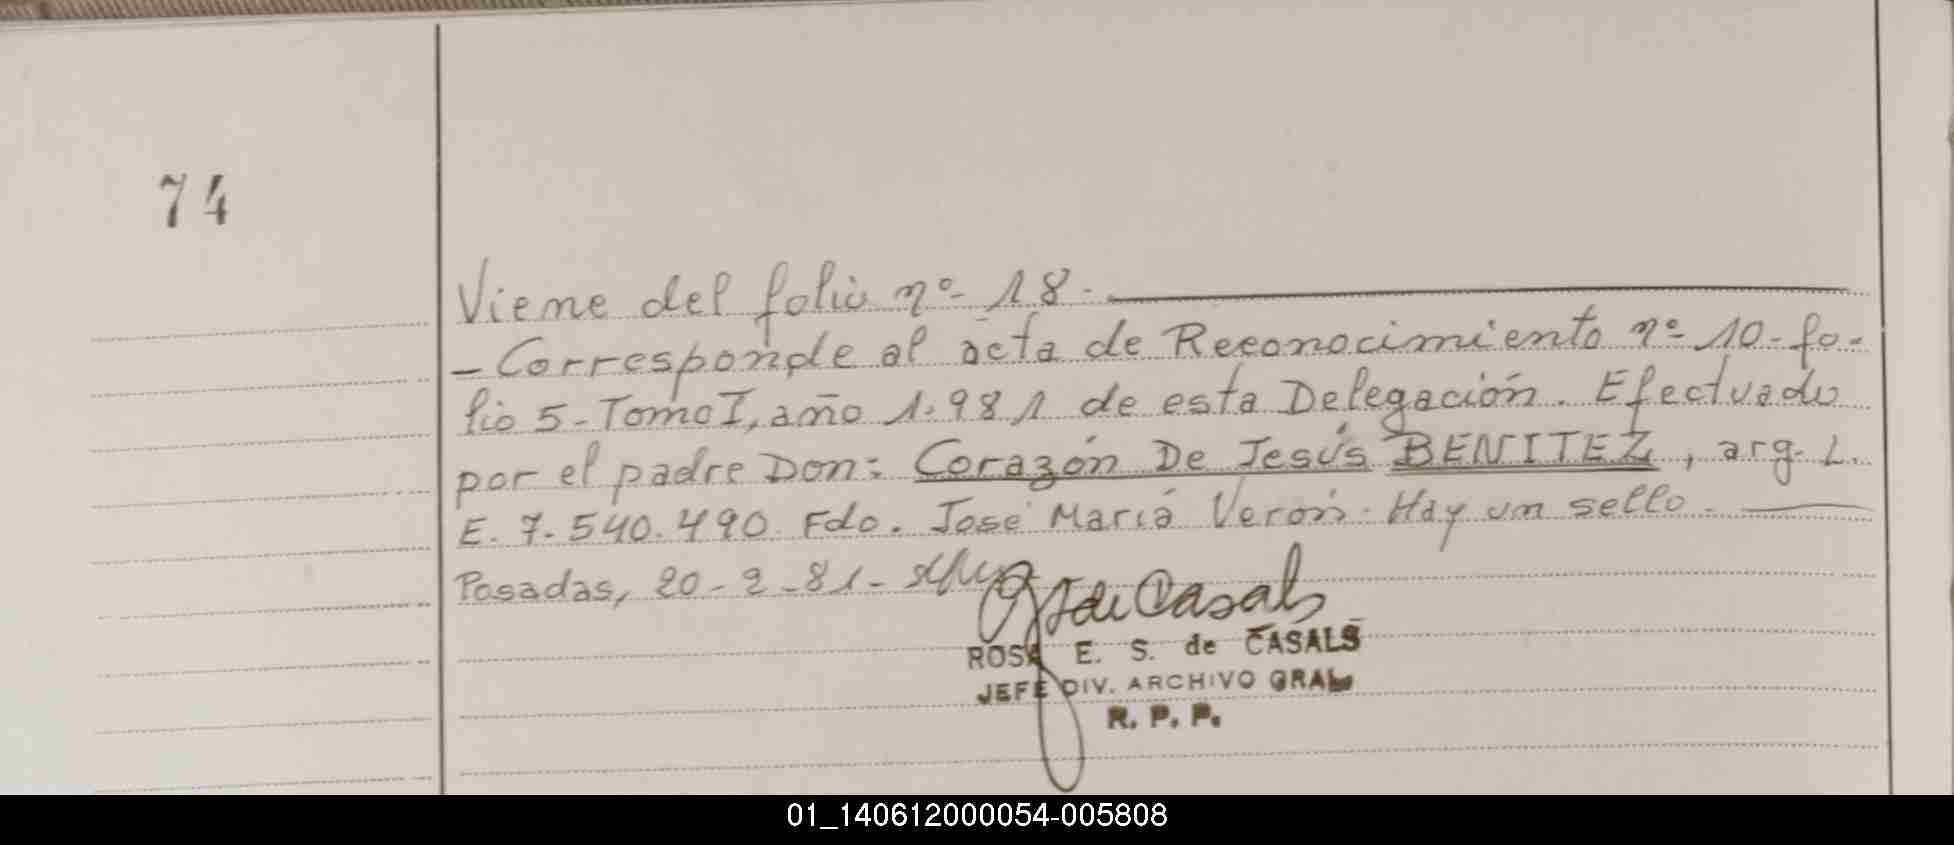 74
Viene del folio nº 18.
- Corresponde al acta de Reconocimiento nº 10- fo-
lio 5- Tomo I, año 1.981 de esta Delegación. Efectuado
por el padre Don: Corazón De Jesús BENITEZ, arg. L.
E. 7.540.490. Fdo. José María Verón. Hay un sello.
Posadas, 20-2-81-
de Casals
ROSA E. S. de CASALS
JEFE DIV. ARCHIVO GRAL
R. P. P.
01_140612000054-005808